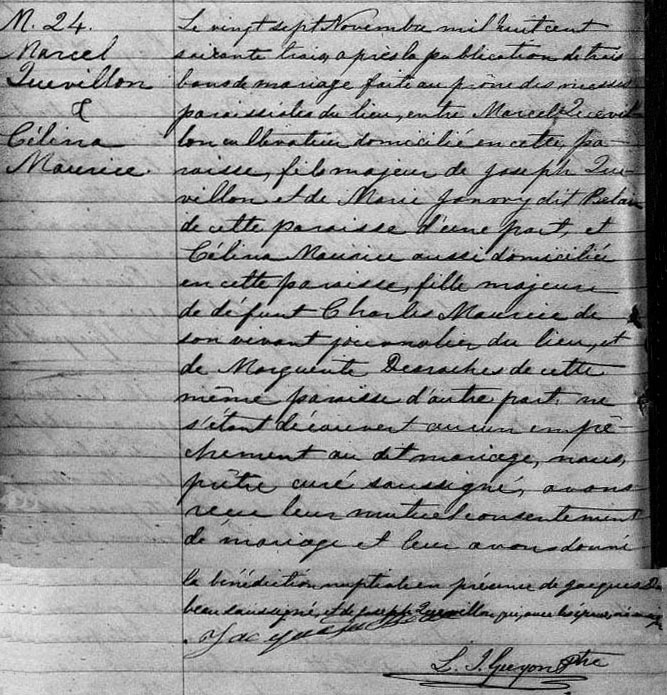 M. 24.
Marcel
Quevillon
&
Célina
Maurice.
Le vingt sept Novembre mil huit cent
soixante trois, après la publication de trois
bans de mariage faite au prône des messes
paroissiales du lieu, entre Marcel Quevil-
lon cultivateur domicilié en cette pa-
roisse, fils majeur de Joseph Que-
villon et de Marie Janvry dit Belair
de cette paroisse d'une part, et
Célina Maurice aussi domiciliée
en cette paroisse, fille majeure
de défunt Charles Maurice de
son vivant journalier du lieu, et
de Marguerite Desroches de cette
même paroisse d'autre part, ne
s'étant découvert aucun empê-
chement au dit mariage, nous,
prêtre curé soussigné, avons
reçu leur mutuel consentement
de mariage et leur avons donné
la bénédiction nuptiale en présence de Jacques
beau soussigné, et de Joseph Quevillon qui, avec les époux,
Jacques
L. J. Guyon Ptre